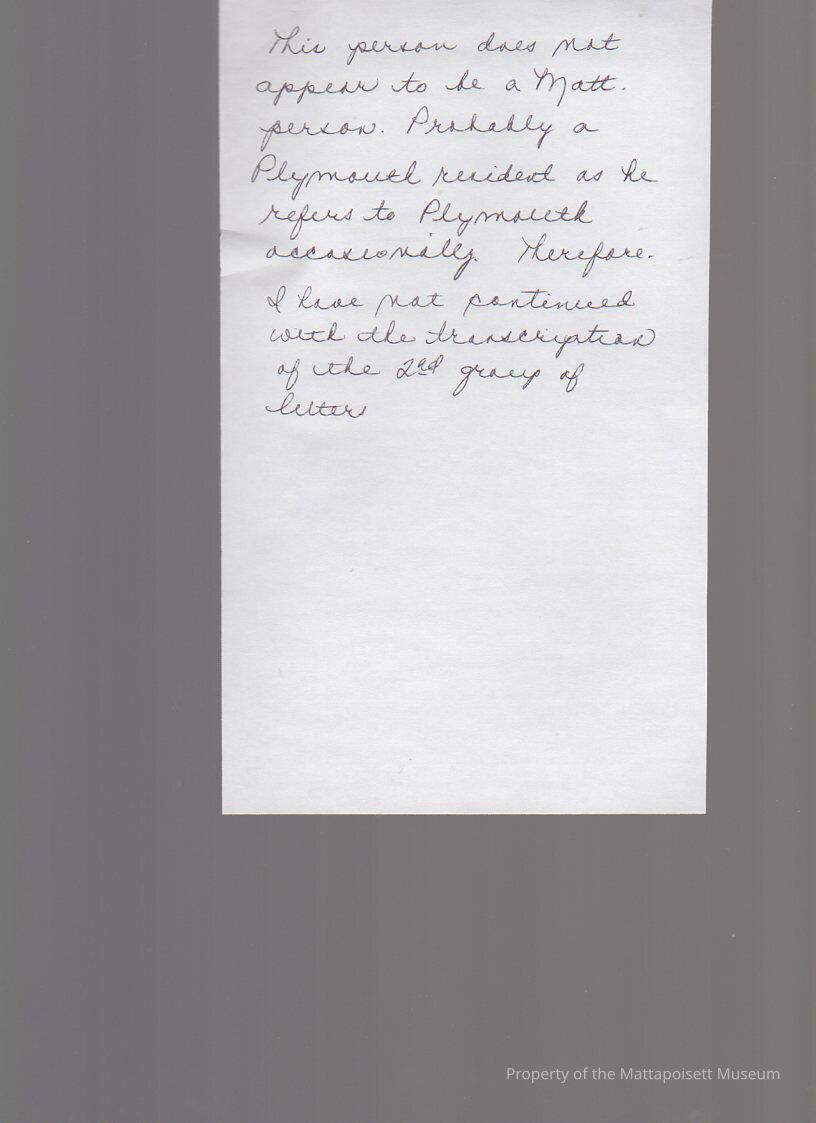 This person does not
appear to be a Matt.
person. Probably a
Plymouth resident as he
refers to Plymouth
occasionally. Therefore.
I have not continued
with the transcription
of the 2nd group of
letters
Property of the Mattapoisett Museum